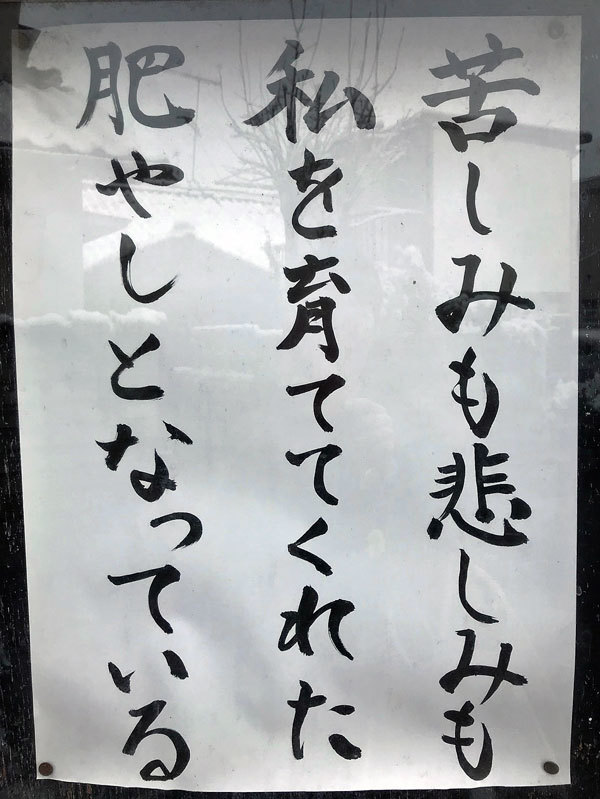 苦しみも悲しみも
私を育ててくれた
肥やしとなっている